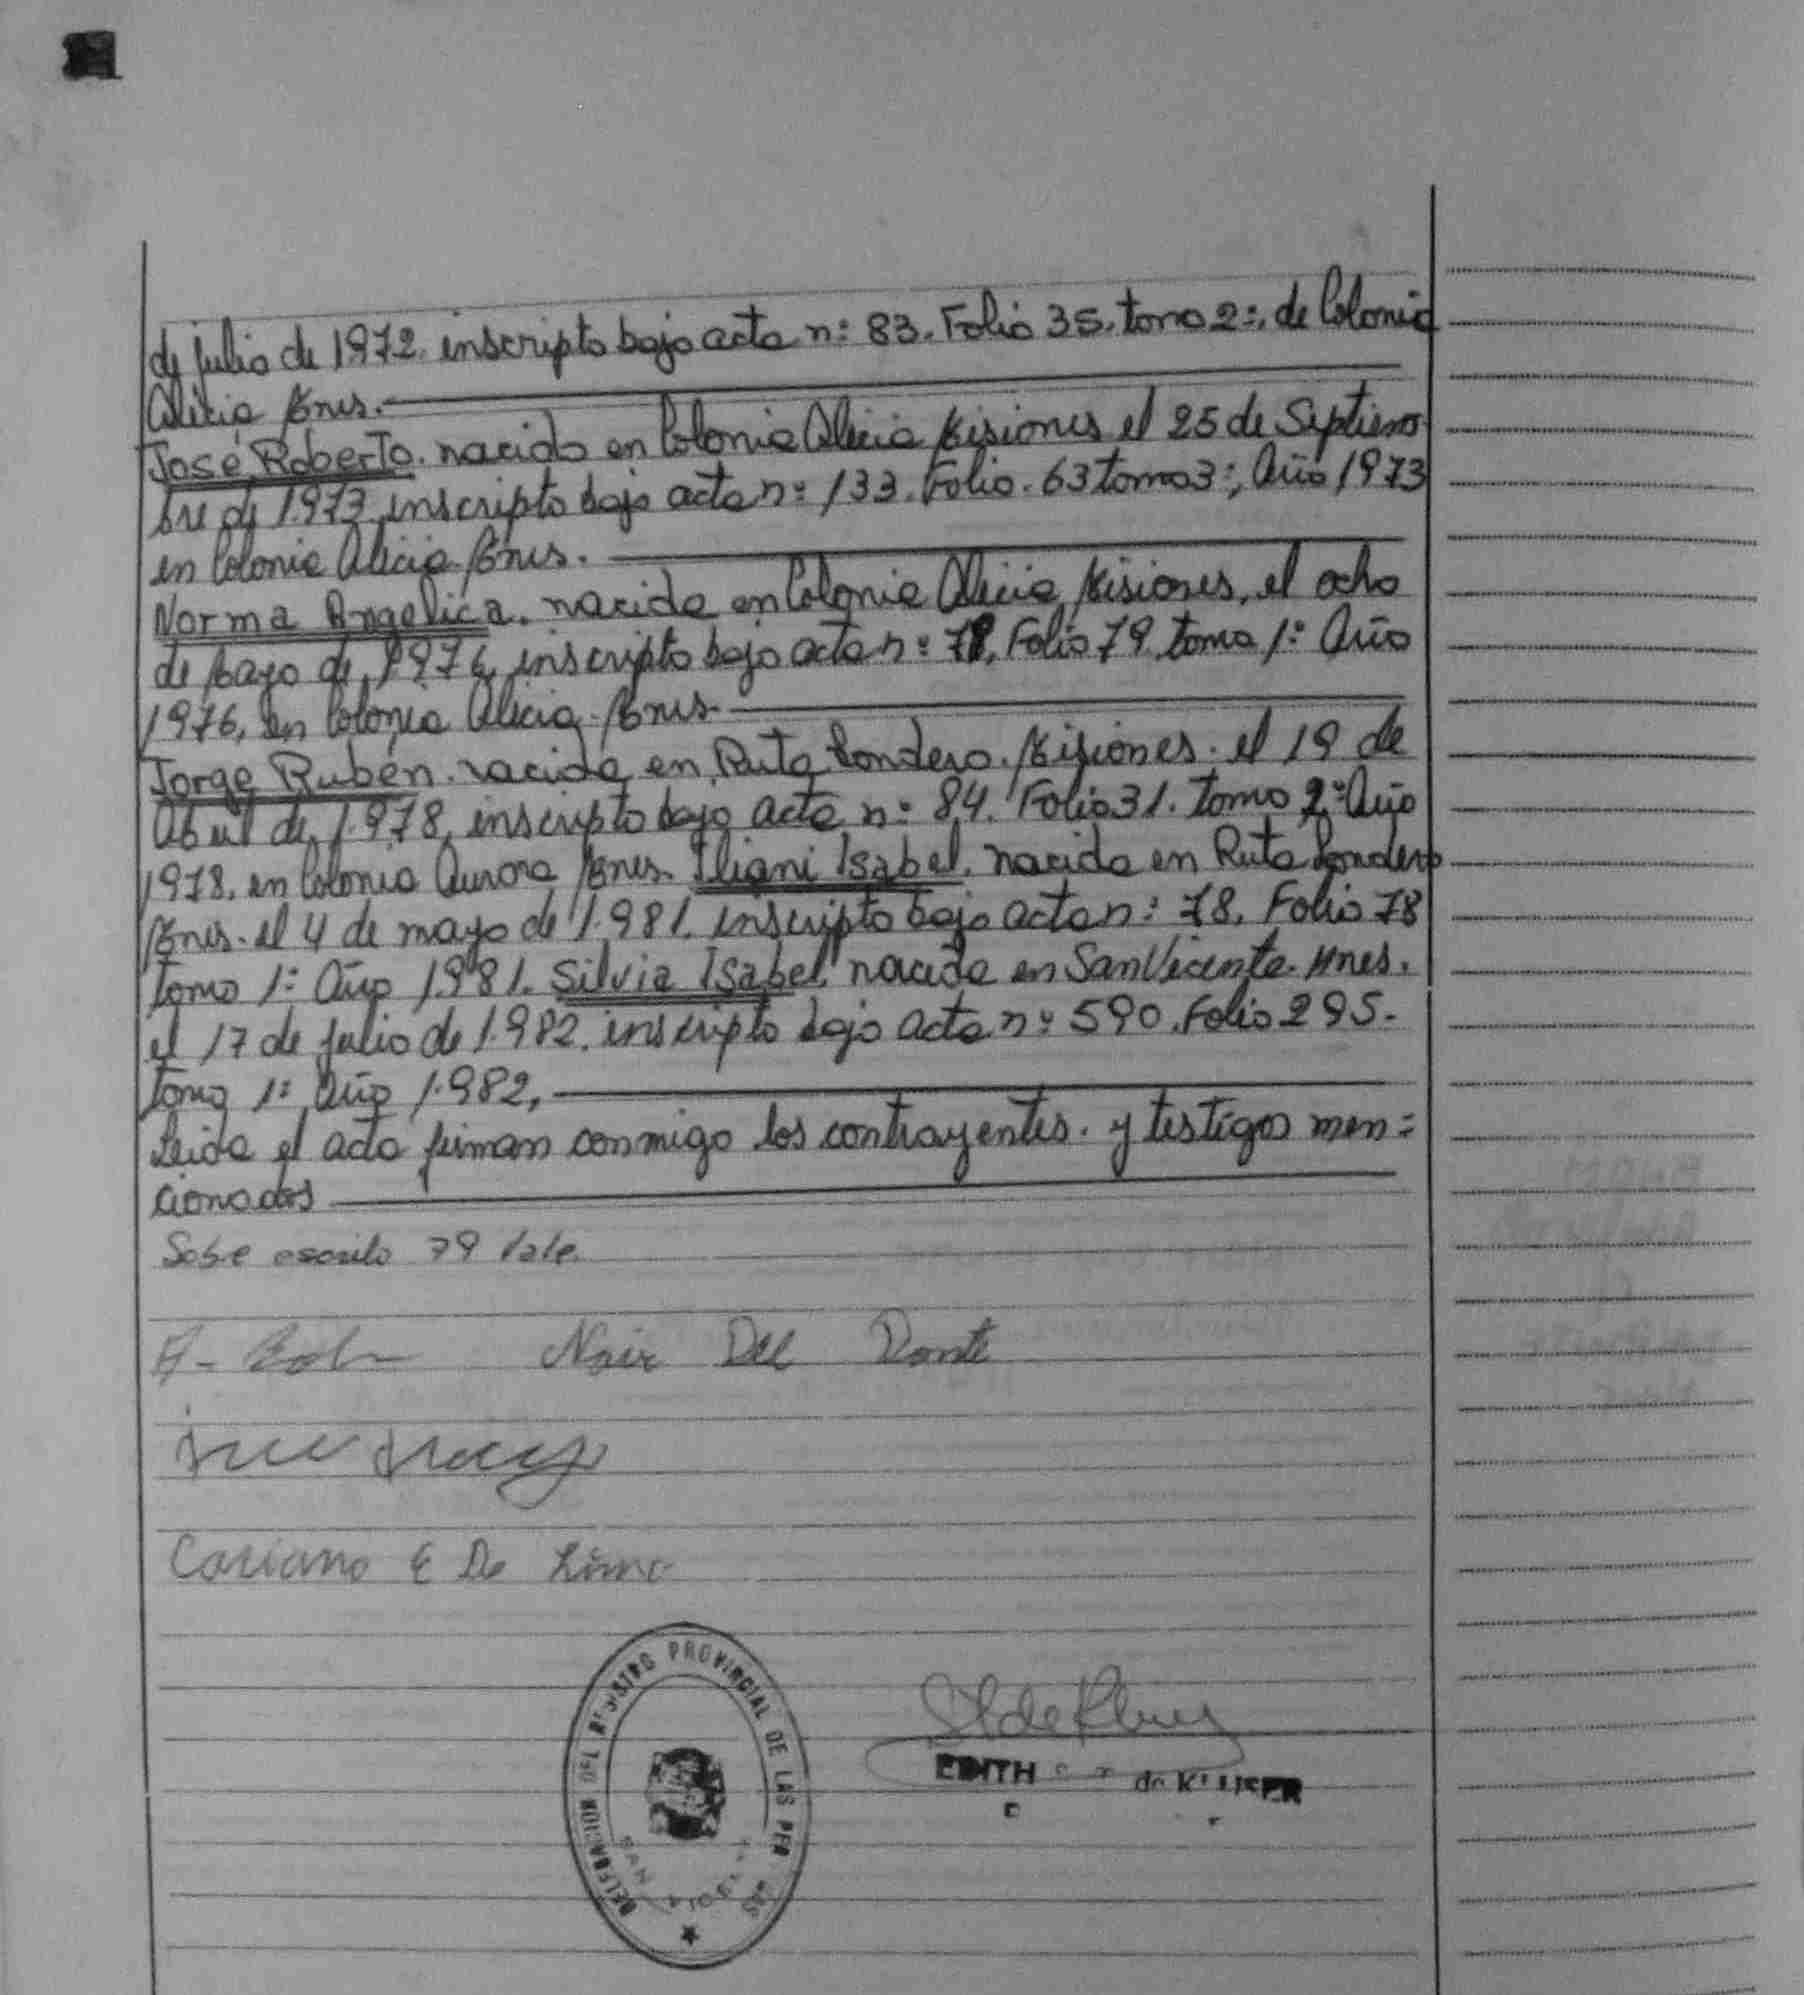 de julio de 1972. inscripto bajo acta n: 83. Folio 35. tomo 2:, de Colonia
Alicia Mnes.
José Roberto. nacido en Colonia Alicia Misiones el 25 de Septiem
bre de 1.973, inscripto bajo acta n: 133. Folio. 63 tomo 3:, Año 1973
en Colonia Alicia Mnes.
Norma Angelica. nacida en Colonia Alicia Misiones, el ocho
de Mayo de 1.976, inscripto bajo acta n: Folio 79. tomo 1: Año
1976, en Colonia Alicia Mnes.
Jorge Rubén. nacido en Ruta Londero. Misiones. el 19 de
Abril de 1.978, inscripto bajo acta n: 84. Folio 31. tomo 2: Año
1978, en Colonia Aurora Mnes. Iliani Isabel. nacida en Ruta Londero
Mnes. el 4 de mayo de 1.981. inscripto bajo acta n: 78. Folio 78
tomo 1: Año 1.981. Silvia Isabel, nacida en San Vicente. Mnes.
el 17 de julio de 1.982. inscripto bajo acta n: 590. Folio 295.
tomo 1: Año 1.982,
Leida el acta firman conmigo los contrayentes. y testigos men=
cionados
Sobre escrito 79 Vale.
Nair Del Ponte
Cariano E De Lima
DELEGACION DEL REGISTRO PROVINCIAL DE LAS PER
SAN
EDITH de